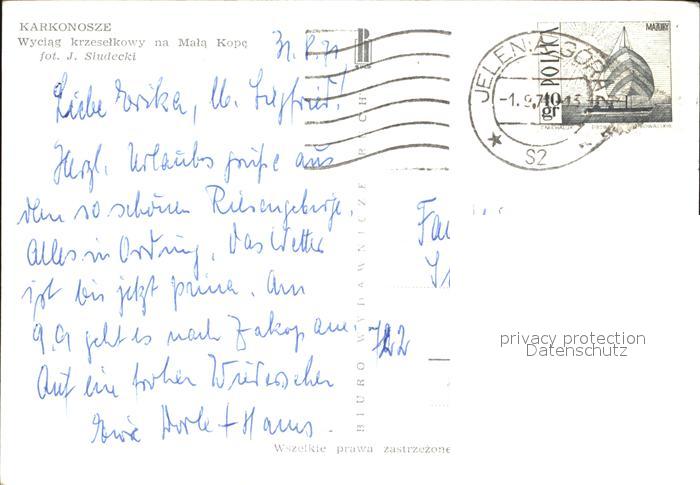 KARKONOSZE
Wyciąg krzesełkowy na Małą Kopę
fot. J. Siudecki
31.8.71
Liebe Erika, lb. Siegfried!
Herzl. Urlaubsgrüße aus
dem so schönen Riesengebirge.
Alles in Ordnung, das Wetter
ist bis jetzt prima. Am
9.9 geht es nach Zakopane.
Auf ein frohes Wiedersehen
Eure Dorle + Hans.
BIURO WYDAWNICZE RUCH
Wszelkie prawa zastrzeżone
JELENIA GÓRA
-1.9.71-13
S2
POLSKA
40 gr
MAZURY
Fa
722
privacy protection
Datenschutz